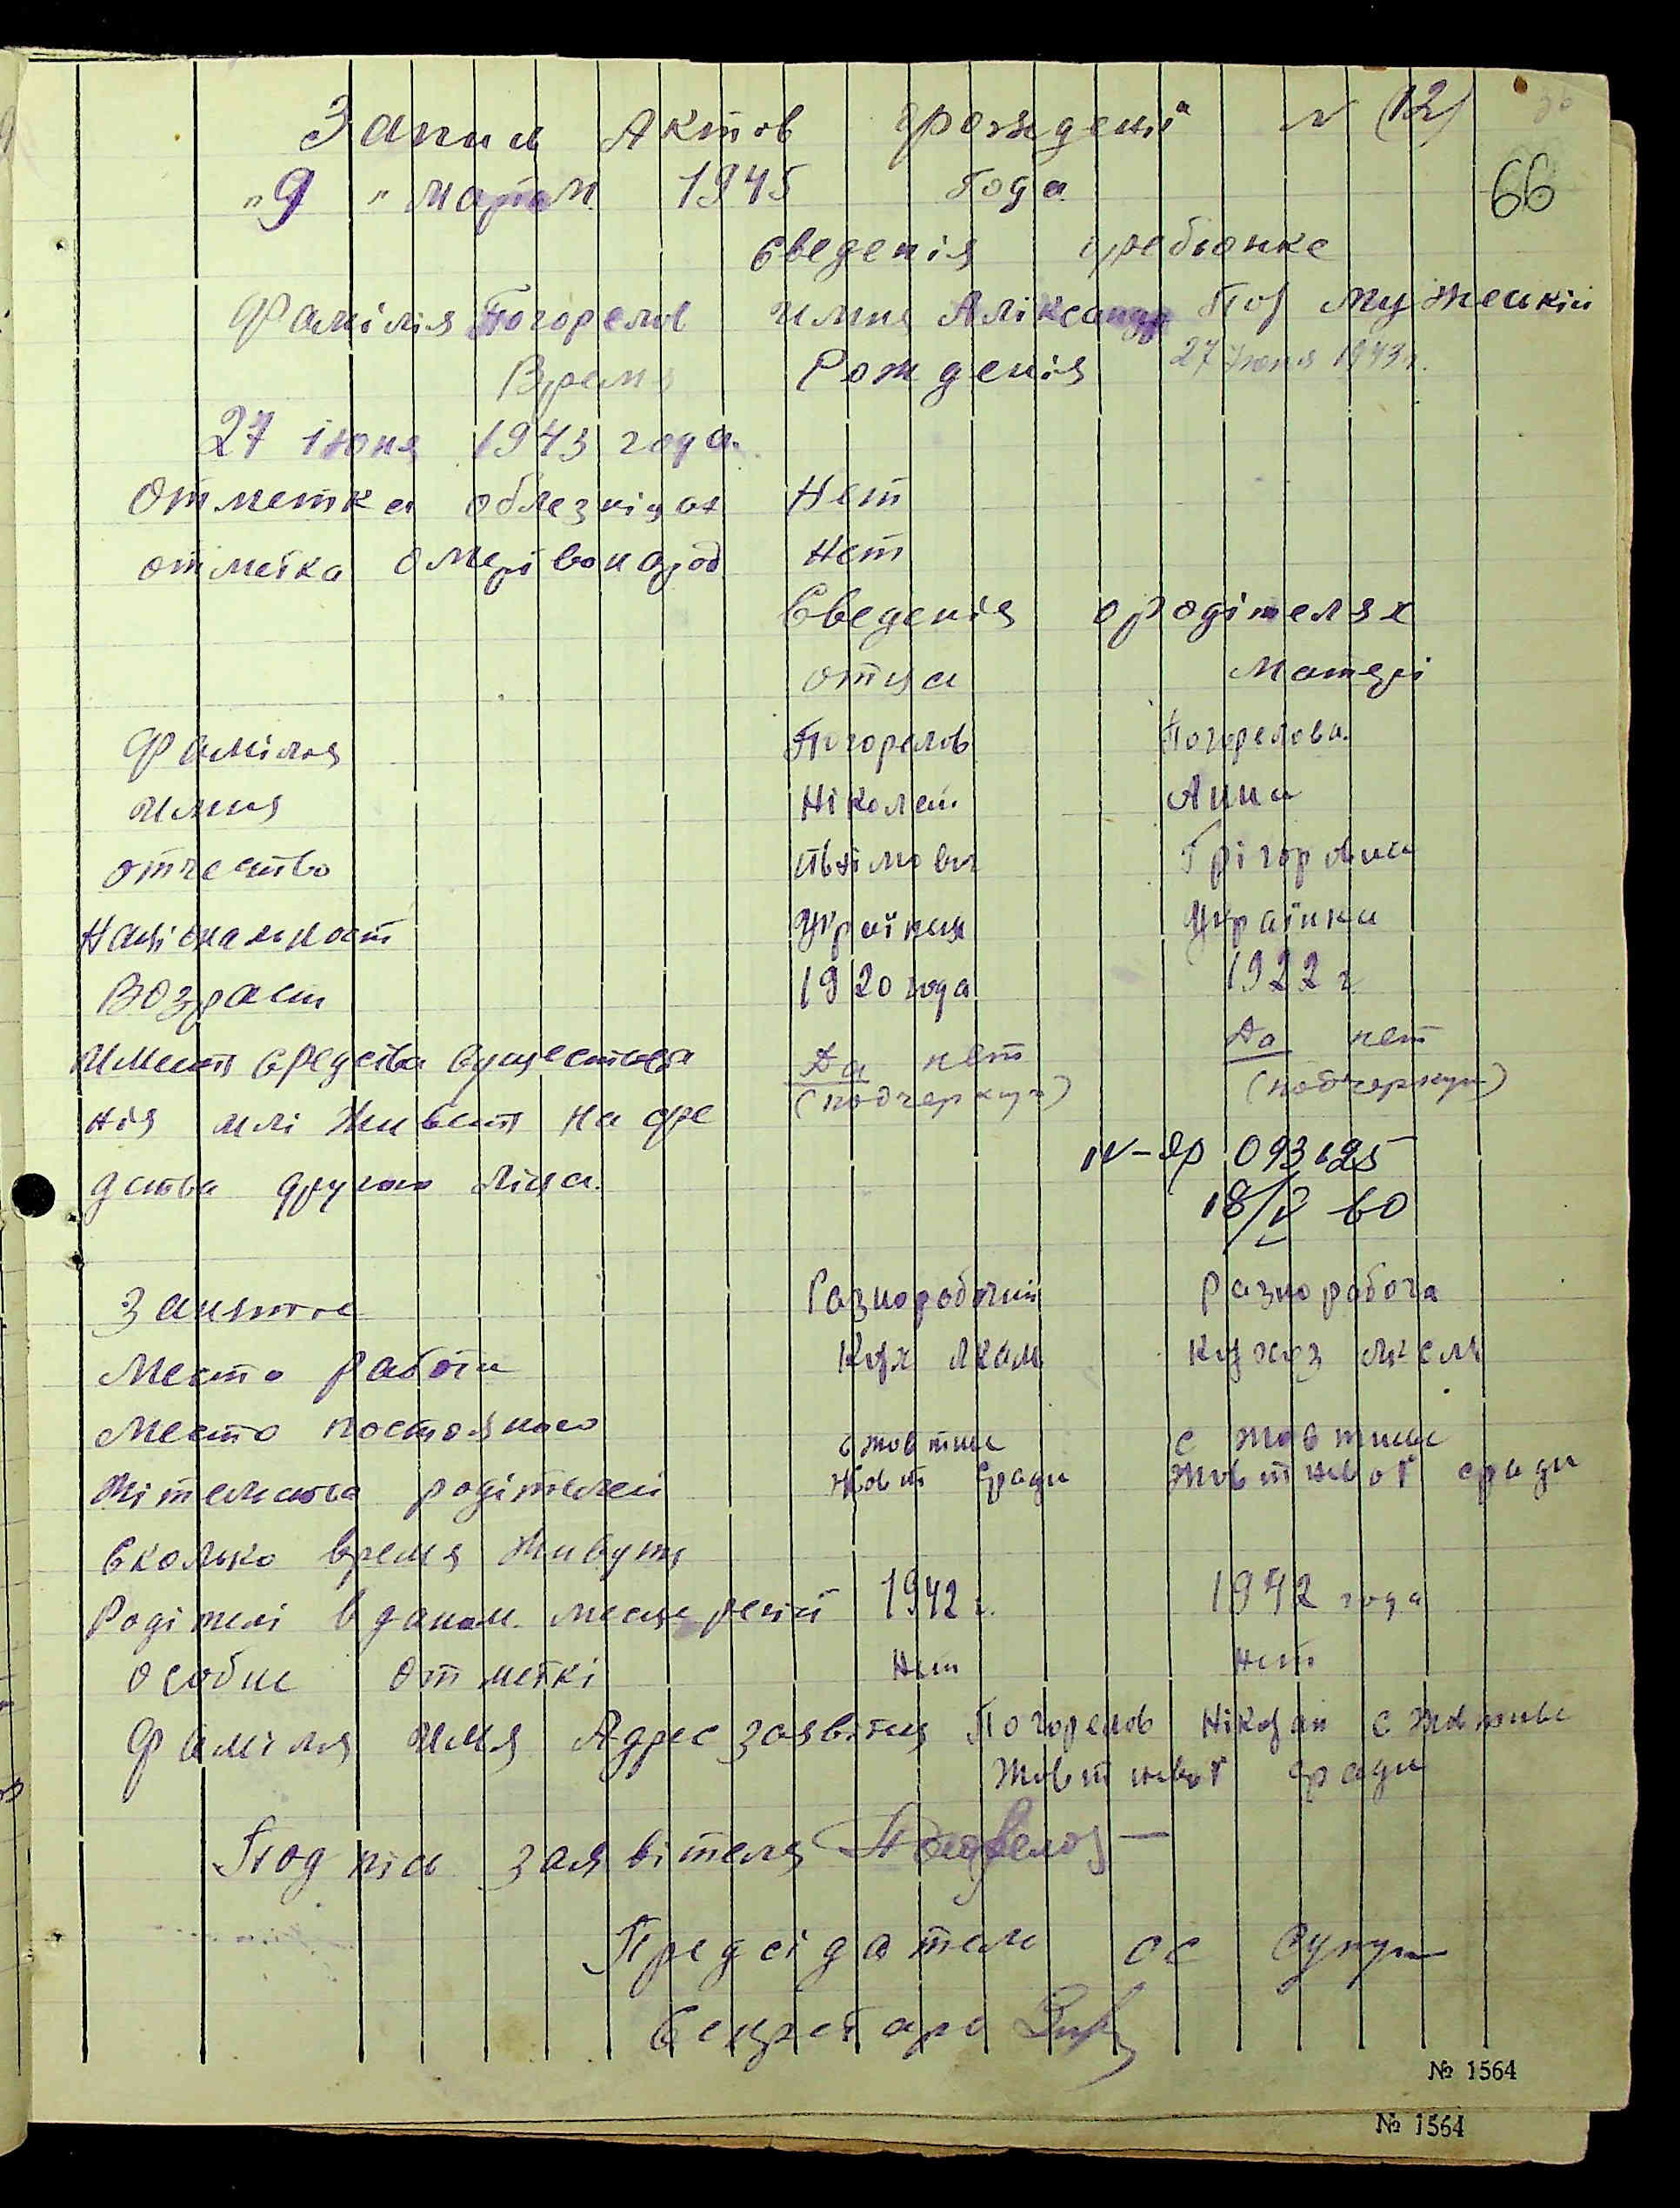 Запись Актов грождения N (12)
"9" марта 1945 года 66
Сведенія оребьонке
Фамілія Погорелов Имия Аліксандр Пол мужескій
Время Рождения 27 июня 1943 г.
27 іюня 1943 года.
Отметка облезніцах Нет
отметка о мертвород Нет
Сведеніяородітелях
отца Матері
Фамілия Погорелов Погорелова
Имия Ніколай Анна
отчество Григоровна
Національност Українец Українка
Возраст 1920 года 1922 г
Имеют средства существова Да нет Да нет
нія илі живет на сре (подчеркнут) (подчеркнут)
дства другого ліца.
IV-ЯР 093125
18/V 60
Занятие Разноробочий Разноробоча
Место работи Колхоз
Место постояного с Жовтнье с Жовтнье
Жітельства родітелей Жовт Гради Жовтневої гради
Сколько время живуть
Родітелі вданом месце 1942 г. 1942 года
особие отметкі Нет Нет
Фамілия имя Адрес заявітля Погорелов Ніколай с Жовтнье
Жовтневої гради
Подпісь заявітеля Погорелов
Председатель СС
Секретарь
№ 1564
№ 1564